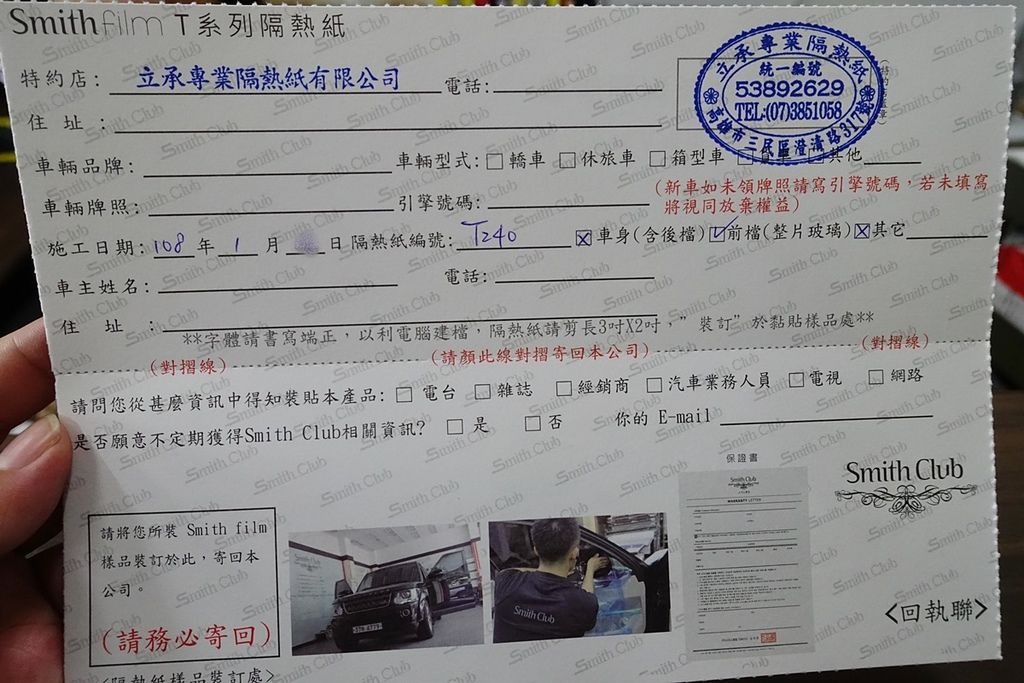 Smith film T系列隔熱紙
特約店: 立承專業隔熱紙有限公司 電話:
立承專業隔熱紙
統一編號
53892629
TEL:(07)3851058
高雄市三民區澄清路317號
住 址 :
車輛品牌: 車輛型式: □ 轎車 □ 休旅車 □ 箱型車 其他
車輛牌照: 引擎號碼: (新車如未領牌照請寫引擎號碼，若未填寫
將視同放棄權益)
施工日期: 108 年 1 月 日 隔熱紙編號: T240 ☒ 車身(含後檔) ☑ 前檔(整片玻璃) ☒ 其它
車主姓名: 電話:
住 址 :
**字體請書寫端正，以利電腦建檔，隔熱紙請剪長3吋X2吋，"裝訂"於黏貼樣品處**
(對摺線) (請顏此線對摺寄回本公司) (對摺線)
請問您從甚麼資訊中得知裝貼本產品: □ 電台 □ 雜誌 □ 經銷商 □ 汽車業務人員 □ 電視 □ 網路
是否願意不定期獲得Smith Club相關資訊? □ 是 □ 否 你的 E-mail
保證書
Smith Club
WARRANTY LETTER
Smith Club
請將您所裝 Smith film
樣品裝訂於此，寄回本
公司。
(請務必寄回)
Smith Club
<回執聯>
<隔熱紙樣品裝訂處>